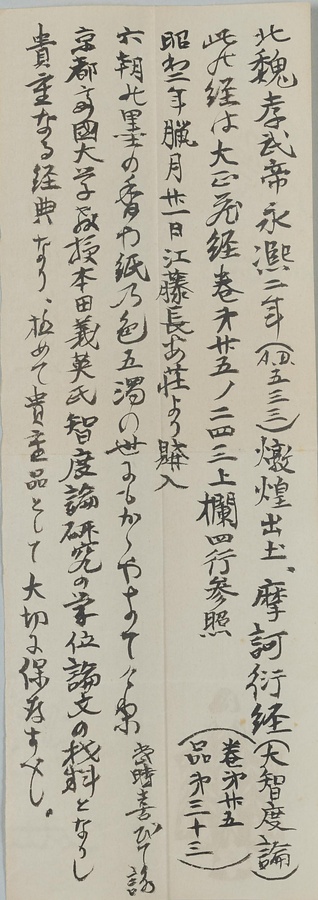 北魏孝武帝永熙二年(A.D.五三三)燉煌出土、摩訶衍経(大智度論)
巻第廿五
品第三十三
此の経は大正蔵経巻第廿五ノ二四三上欄四行参照
昭和二年臘月廿一日江藤長安荘より購入
六朝の墨の香や紙の色五濁の世にもかゝやきて
当時喜びて詠
京都帝國大学教授本田義英氏智度論研究の学位論文の材料となりし
貴重なる経典なり、極めて貴重品として大切に保存すべし。